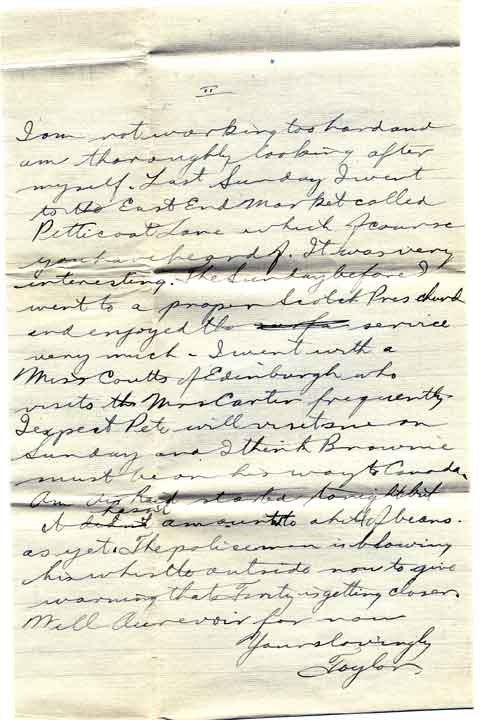 II
I am not working too hard and
am thoroughly looking after
myself. Last Sunday I went
to the East End Market called
Petticoat Lane which of course
you have heard of. It was very
interesting. The Sunday before I
went to a proper Scotch Pres church
and enjoyed the service
very much - I went with a
Miss Coutts of Edinburgh who
visits the Mrs Carter frequently.
I expect Pete will visit me on
Sunday and I think Brownie
must be on his way to Canada.
An air raid started tonight but
it hasn't amount to a hill of beans.
as yet. The policeman is blowing
his whistle outside now to give
warning that Fritz is getting closer.
Well Aurevoir for now
Yours lovingly
Taylor